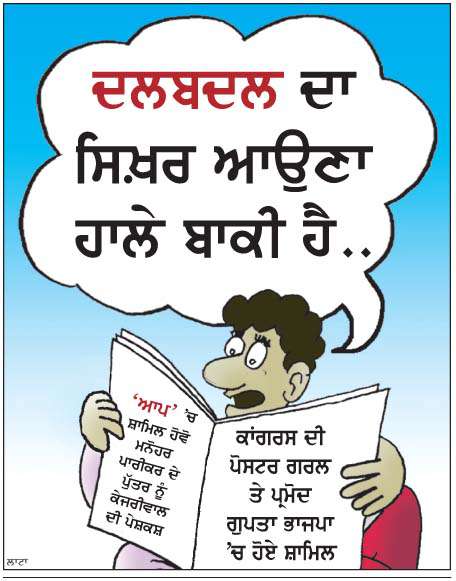 ਦਲਬਦਲ ਦਾ
ਸਿਖ਼ਰ ਆਉਣਾ
ਹਾਲੇ ਬਾਕੀ ਹੈ..
‘ਆਪ’ ’ਚ
ਸ਼ਾਮਿਲ ਹੋਵੋ
ਮਨੋਹਰ
ਪਾਰੀਕਰ ਦੇ
ਪੁੱਤਰ ਨੂੰ
ਕੇਜਰੀਵਾਲ
ਦੀ ਪੇਸ਼ਕਸ਼
ਕਾਂਗਰਸ ਦੀ
ਪੋਸਟਰ ਗਰਲ
ਤੇ ਪ੍ਰਮੋਦ
ਗੁਪਤਾ ਭਾਜਪਾ
’ਚ ਹੋਏ ਸ਼ਾਮਿਲ
ਲਾਟਾ